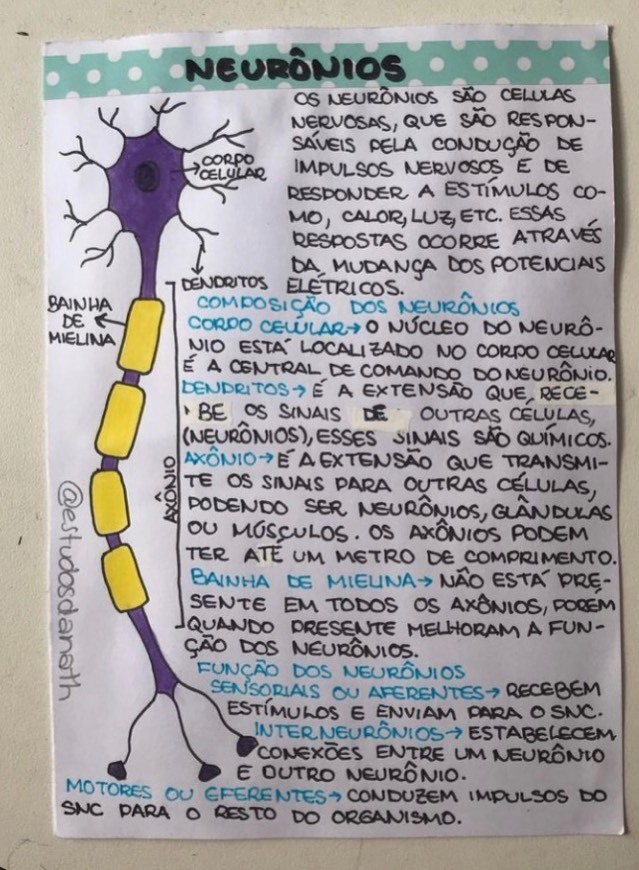 NEURÔNIOS
OS NEURÔNIOS SÃO CELULAS
NERVOSAS, QUE SÃO RESPON-
SÁVEIS PELA CONDUÇÃO DE
IMPULSOS NERVOSOS E DE
RESPONDER A ESTÍMULOS CO-
MO, CALOR, LUZ, ETC. ESSAS
RESPOSTAS OCORRE ATRAVÉS
DA MUDANÇA DOS POTENCIAIS
ELÉTRICOS.
CORPO
CELULAR
DENDRITOS
BAINHA
DE
MIELINA
AXÔNIO
@estudosdanath
COMPOSIÇÃO DOS NEURÔNIOS
CORPO CELULAR→ O NÚCLEO DO NEURÔ-
NIO ESTÁ LOCALIZADO NO CORPO CELULAR
É A CENTRAL DE COMANDO DO NEURÔNIO.
DENDRITOS→ É A EXTENSÃO QUE RECE-
BE OS SINAIS DE OUTRAS CÉLULAS,
(NEURÔNIOS), ESSES SINAIS SÃO QUÍMICOS.
AXÔNIO→ É A EXTENSÃO QUE TRANSMI-
TE OS SINAIS PARA OUTRAS CÉLULAS,
PODENDO SER NEURÔNIOS, GLÂNDULAS
OU MÚSCULOS. OS AXÔNIOS PODEM
TER ATÉ UM METRO DE COMPRIMENTO.
BAINHA DE MIELINA→ NÃO ESTÁ PRE-
SENTE EM TODOS OS AXÔNIOS, PORÉM
QUANDO PRESENTE MELHORAM A FUN-
ÇÃO DOS NEURÔNIOS.
FUNÇÃO DOS NEURÔNIOS
SENSORIAIS OU AFERENTES→ RECEBEM
ESTÍMULOS E ENVIAM PARA O SNC.
INTERNEURÔNIOS→ ESTABELECEM
CONEXÕES ENTRE UM NEURÔNIO
E OUTRO NEURÔNIO.
MOTORES OU EFERENTES→ CONDUZEM IMPULSOS DO
SNC PARA O RESTO DO ORGANISMO.